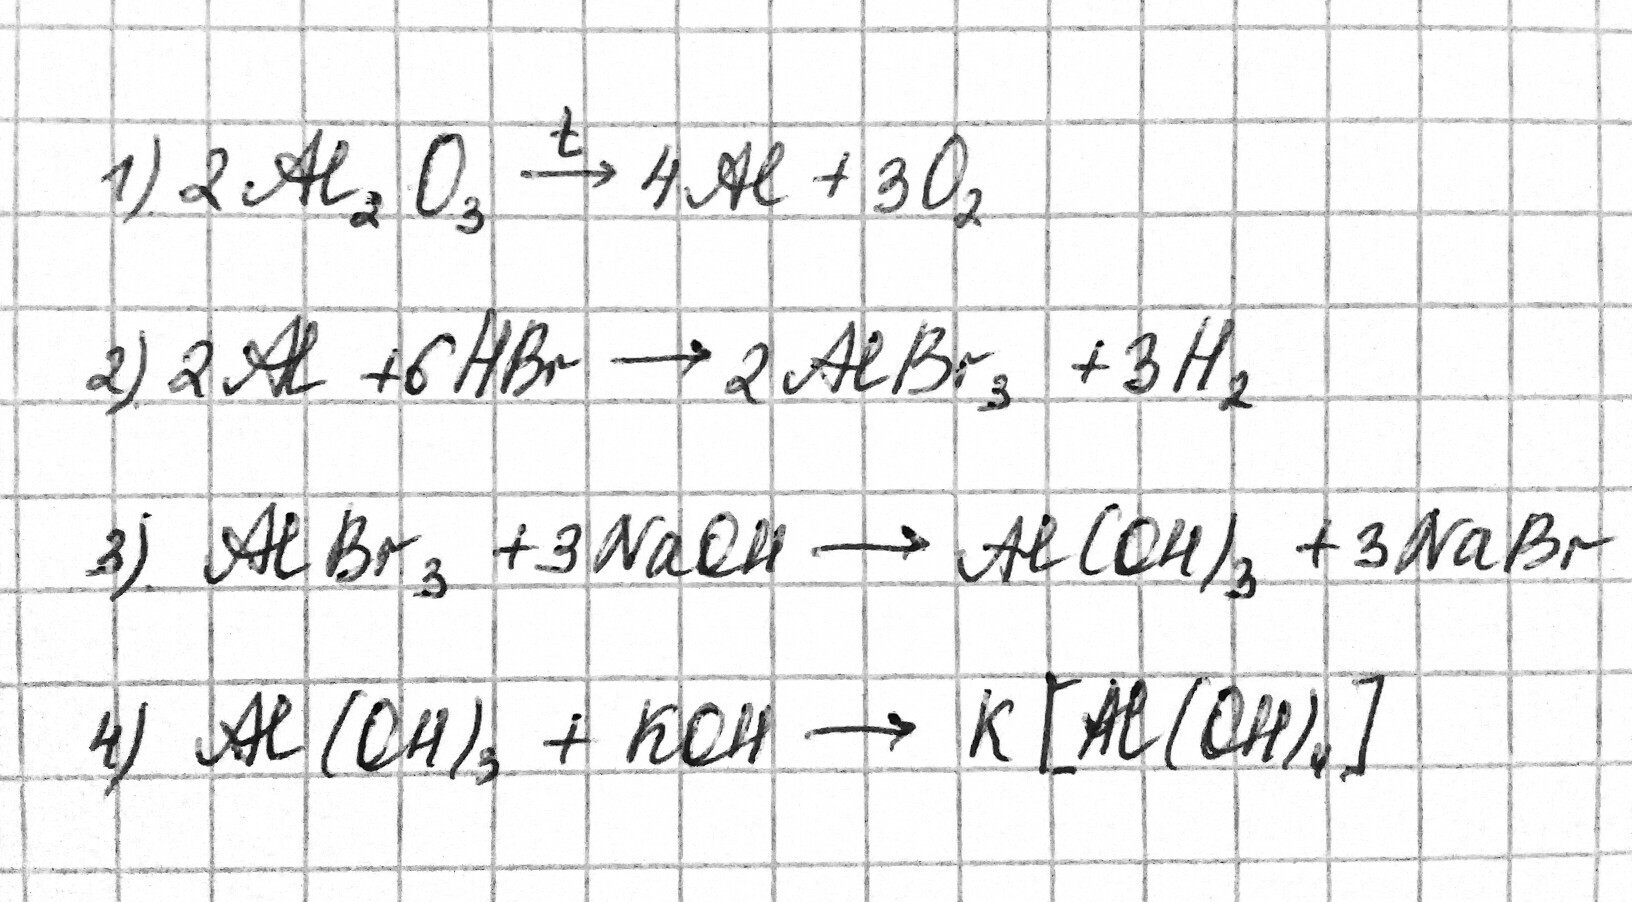 1) 2Al₂O₃ →ᵗ 4Al + 3O₂
2) 2Al + 6HBr → 2AlBr₃ + 3H₂
3) AlBr₃ + 3NaOH → Al(OH)₃ + 3NaBr
4) Al(OH)₃ + KOH → K[Al(OH)₄]